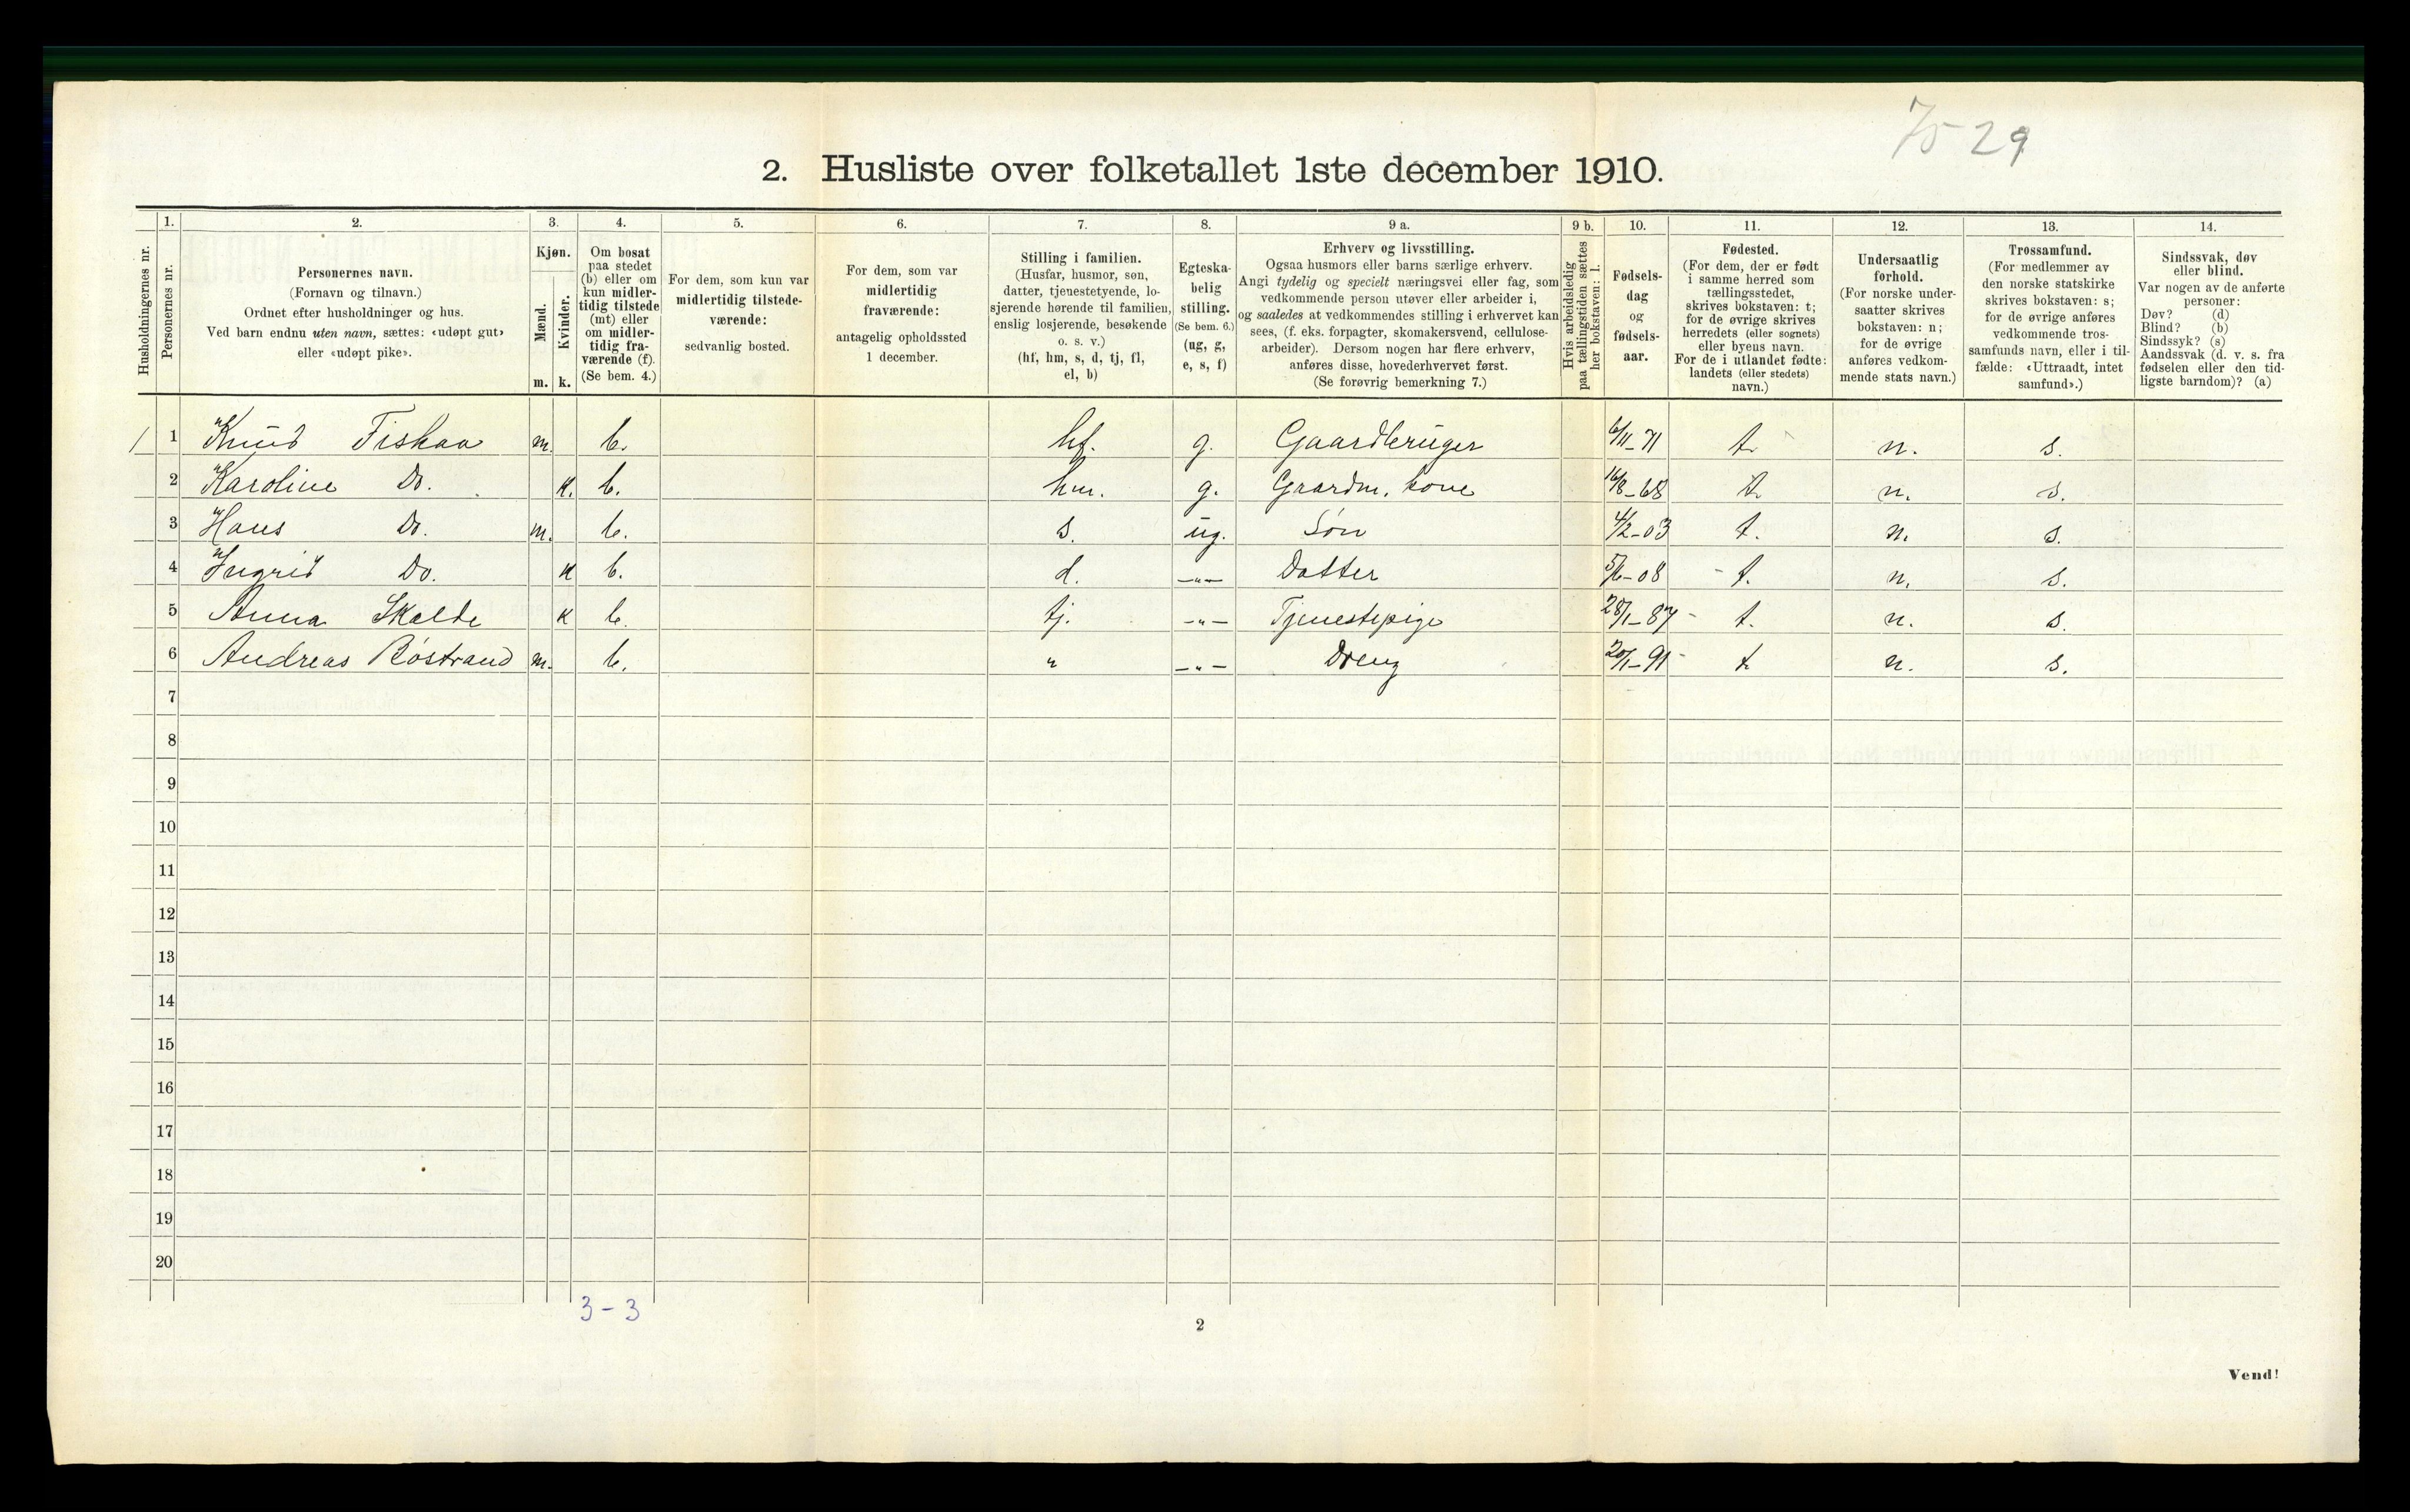 75 29
2. Husliste over folketallet 1ste december 1910.
Husholdningernes nr.
1.
Personernes nr.
2.
Personernes navn.
(Fornavn og tilnavn.)
Ordnet efter husholdninger og hus.
Ved barn endnu uten navn, sættes: «udøpt gut»
eller «udøpt pike».
3.
Kjøn.
Mænd.
Kvinder.
m. k.
4.
Om bosat
paa stedet
(b) eller om
kun midler-
tidig tilstede
(mt) eller
om midler-
tidig fra-
værende (f).
(Se bem. 4.)
5.
For dem, som kun var
midlertidig tilstede-
værende:
sedvanlig bosted.
6.
For dem, som var
midlertidig
fraværende:
antagelig opholdssted
1 december.
7.
Stilling i familien.
(Husfar, husmor, søn,
datter, tjenestetyende, lo-
sjerende hørende til familien,
enslig losjerende, besøkende
o. s. v.)
(hf, hm, s, d, tj, fl,
el, b)
8.
Egteska-
belig
stilling.
(Se bem. 6.)
(ug, g,
e, s, f)
9 a.
Erhverv og livsstilling.
Ogsaa husmors eller barns særlige erhverv.
Angi tydelig og specielt næringsvei eller fag, som
vedkommende person utøver eller arbeider i,
og saaledes at vedkommendes stilling i erhvervet kan
sees, (f. eks. forpagter, skomakersvend, cellulose-
arbeider). Dersom nogen har flere erhverv,
anføres disse, hovederhvervet først.
(Se forøvrig bemerkning 7.)
9 b.
Hvis arbeidsledig
paa tællingstiden sættes
her bokstaven: l.
10.
Fødsels-
dag
og
fødsels-
aar.
11.
Fødested.
(For dem, der er født
i samme herred som
tællingsstedet,
skrives bokstaven: t;
for de øvrige skrives
herredets (eller sognets)
eller byens navn.
For de i utlandet fødte:
landets (eller stedets)
navn.)
12.
Undersaatlig
forhold.
(For norske under-
saatter skrives
bokstaven: n;
for de øvrige
anføres vedkom-
mende stats navn.)
13.
Trossamfund.
(For medlemmer av
den norske statskirke
skrives bokstaven: s;
for de øvrige anføres
vedkommende tros-
samfunds navn, eller i til-
fælde: «Uttraadt, intet
samfund».)
14.
Sindssvak, døv
eller blind.
Var nogen av de anførte
personer:
Døv? (d)
Blind? (b)
Sindssyk? (s)
Aandssvak (d. v. s. fra
fødselen eller den tid-
ligste barndom)? (a)
1 1 Knud Fiskaa m. b. hf. g. Gaardbruger 6/11-71 t. n. s.
2 Karoline Do. k. b. hm. g. Gaardm. kone 16/8-68 t. n. s.
3 Hans Do. m. b. s. ug. Søn 4/2-03 t. n. s.
4 Ingrid Do. k b. d. -"- Datter 5/6-08 - t. n. s.
5 Anna Skalde k b. tj. -"- Tjenestepige 28/1-87 - t. n. s.
6 Andreas Røstrand m. b. " -"- Dreng 20/1-91 - t n. s.
7
8
9
10
11
12
13
14
15
16
17
18
19
20
3-3
2
Vend!